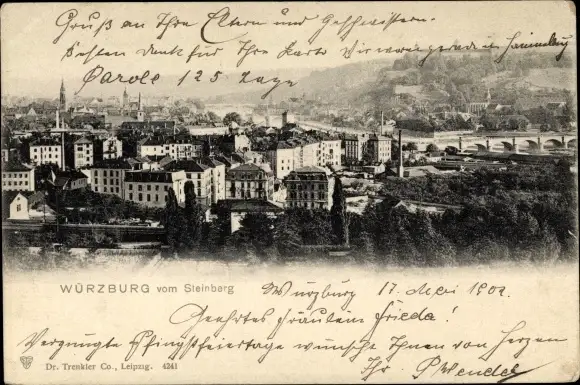 Gruß an Ihre Eltern und Geschwistern.
schönen Dank für Ihre Karte wir waren gerade in
Parole 125 Tage
WÜRZBURG vom Steinberg
Würzburg 17. Mai 1902
Geehrtes Fräulein Frieda!
Vergnügte Pfingstfeiertage wünscht Ihnen von Herzen
Ihr
Dr. Trenkler Co., Leipzig. 4241